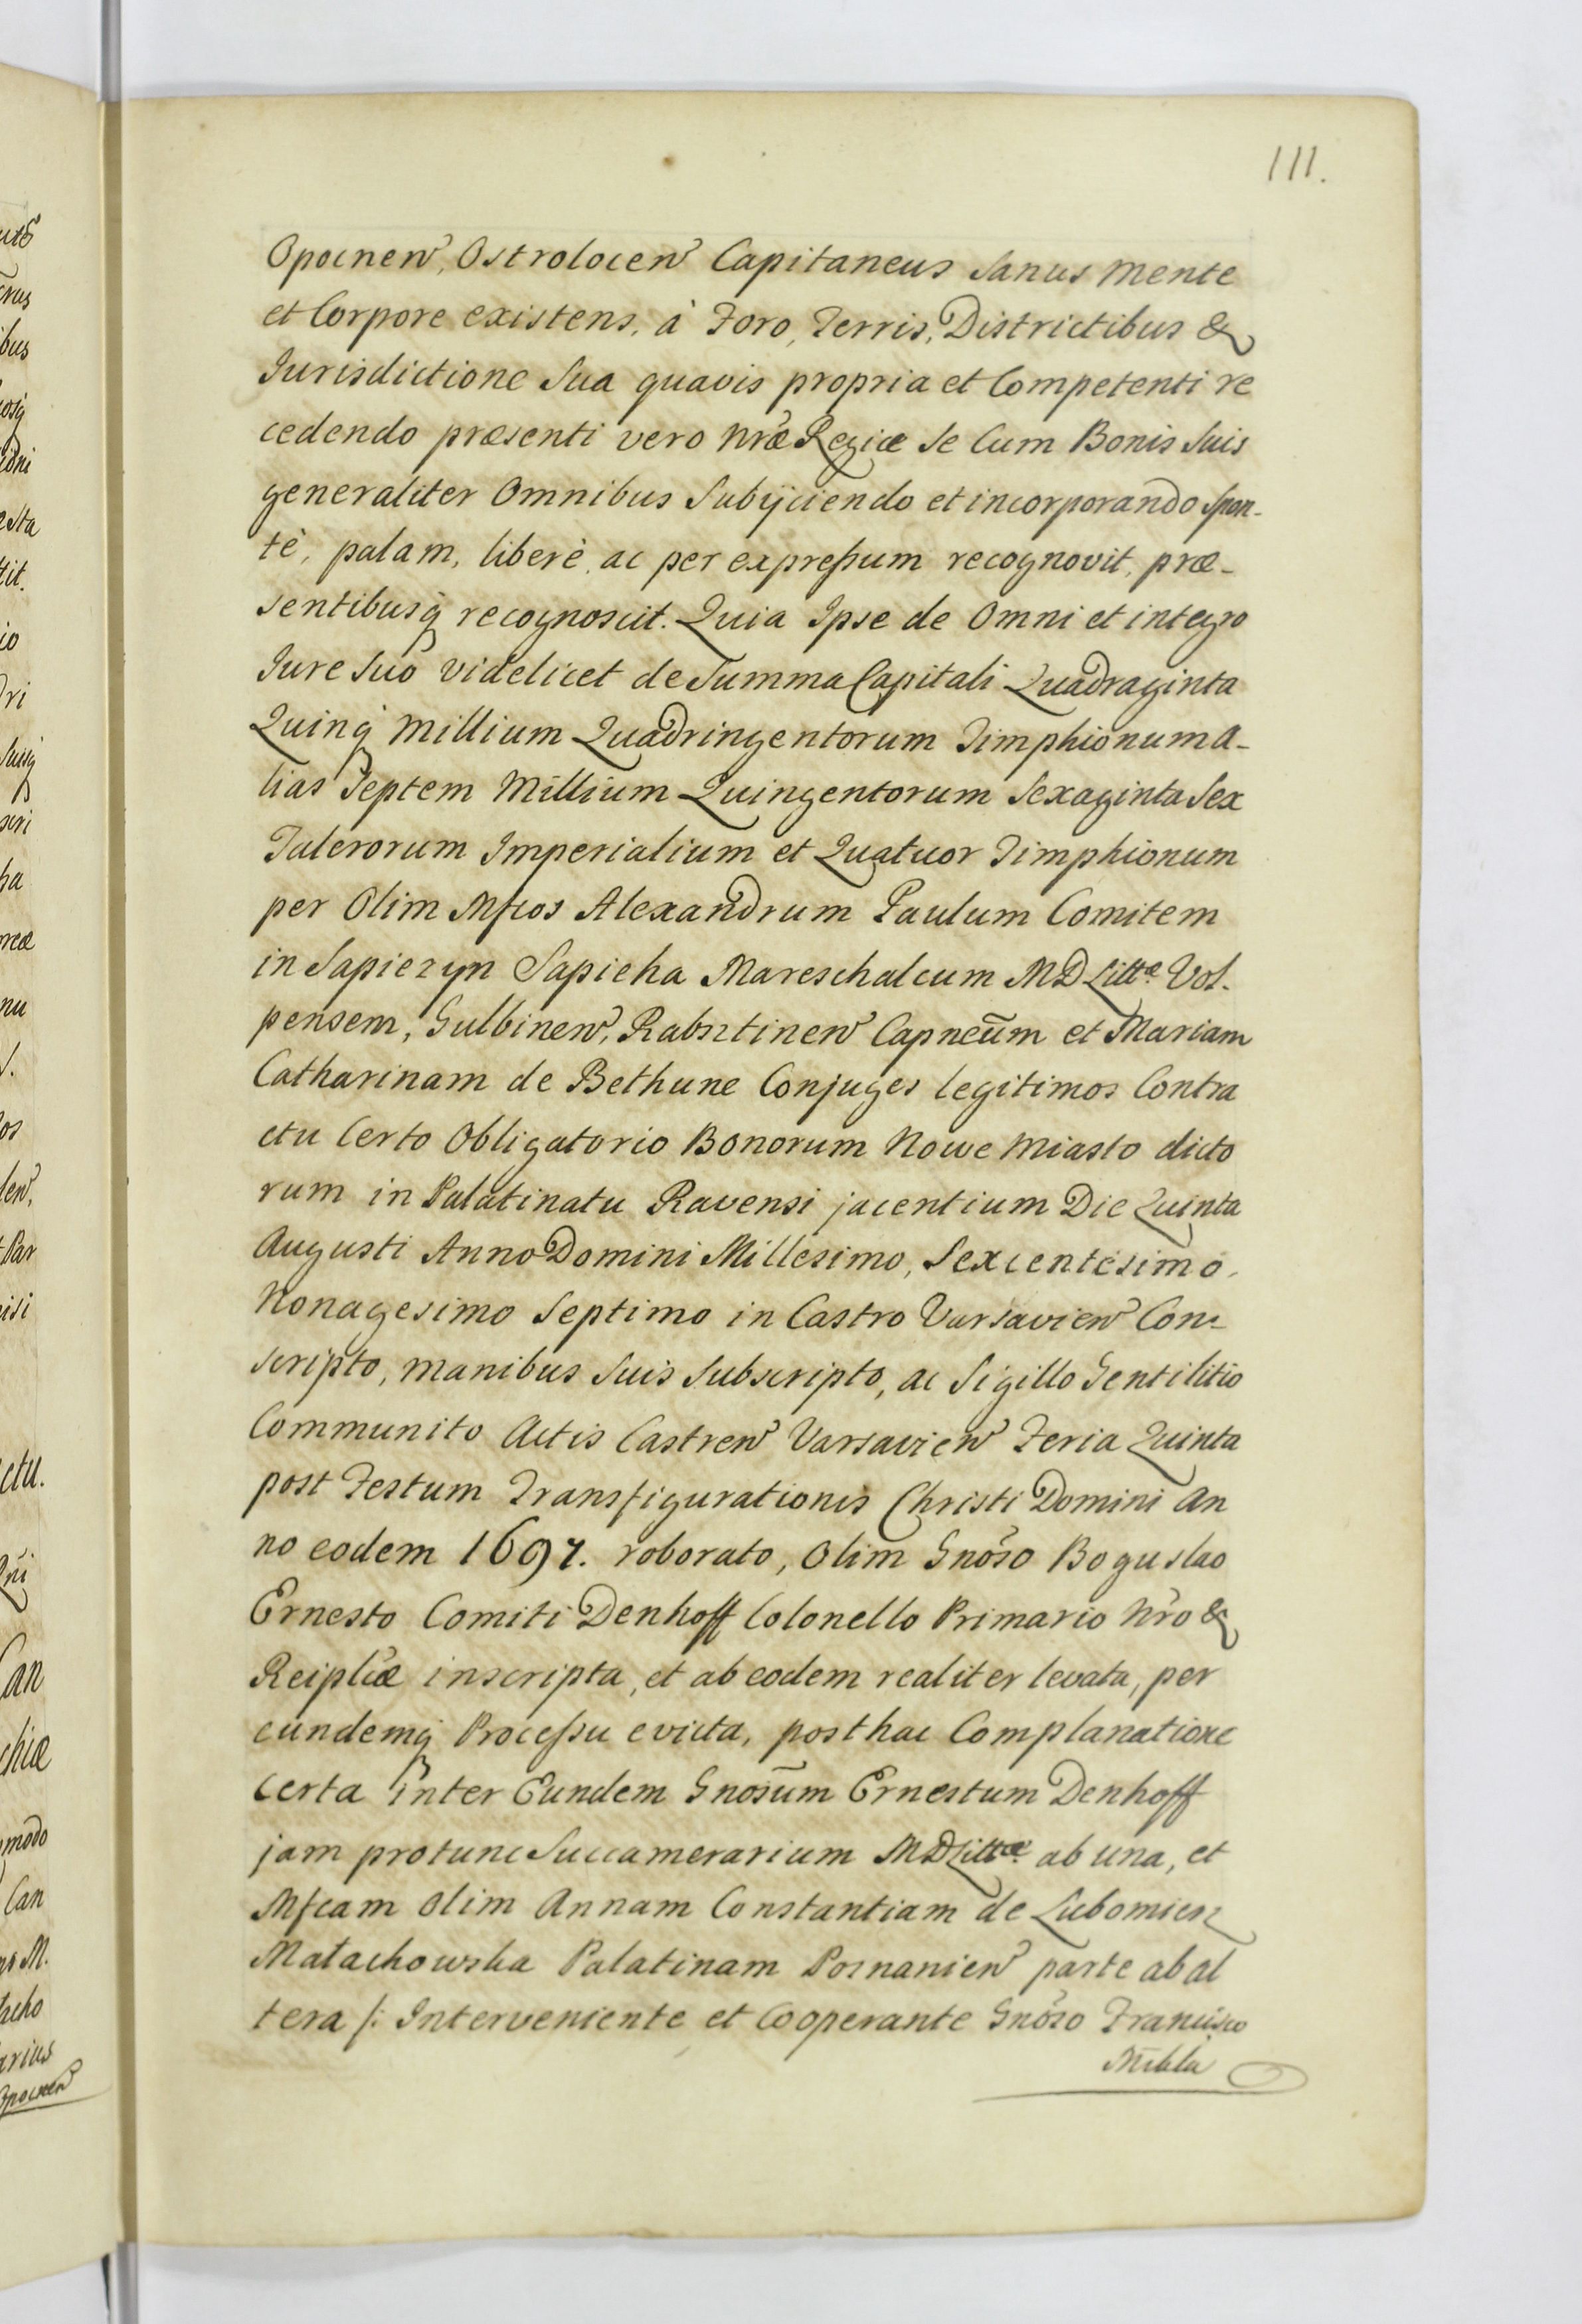 111.
Opocnen̄, Ostrolocen̄ Capitaneus Sanus mente
et Corpore existens, à Foro, Terris, Districtibus &
Jurisdictione Sua quavis propria et Competenti re
cedendo præsenti vero Nr̃æ Regiæ Se Cum Bonis Suis
generaliter Omnibus Subijciendo et incorporando Spon-
tè, palam, liberè, ac per expreſsum recognovit, præ-
sentibusq̃ recognoscit. Quia Ipse de Omni et integro
Jure Suo videlicet de Summa Capitali Quadraginta
Quinq̃ Millium Quadringentorum Timphionum A-
lias Septem Millium Quingentorum Sexaginta Sex
Talerorum Imperialium et Quatuor Timphionum
per Olim Mfcos Alexandrum Paulum Comitem
in Sapiezyn Sapieha Mareschalcum MD Littæ Vol-
pensem, Gulbinen̄, Rabsztinen̄ Capneūm et Mariam
Catharinam de Bethune Conjuges legitimos Contra
ctu Certo Obligatorio Bonorum Nowe Miasto dicto
rum in Palatinatu Ravensi jacentium Die Quinta
Augusti Anno Domini Millesimo, Sexcentesimo,
Nonagesimo Septimo in Castro Varsavien̄ Con-
scripto, manibus Suis Subscripto, ac Sigillo Gentilitio
Communito Actis Castren̄ Varsavien̄ Feria Quinta
post Festum Transfigurationis Christi Domini An
no eodem 1697. roborato, Olim Gnõso Boguslao
Ernesto Comiti Denhoff Colonello Primario Nr̃o &
Reiplĩcæ inscripta, et ab eodem realiter levata, per
eundemq̃ Proceſsu evicta, posthac Complanatione
Certa inter Eundem Gnosūm Ernestum Denhoff
jam protunc Succamerarium MD Littæ ab una, et
Mfcam Olim Annam Constantiam de Lubomierz
Małachowska Palatinam Posnanien̄ parte ab al
tera /: Interveniente et Cooperante Gnõso Francisco